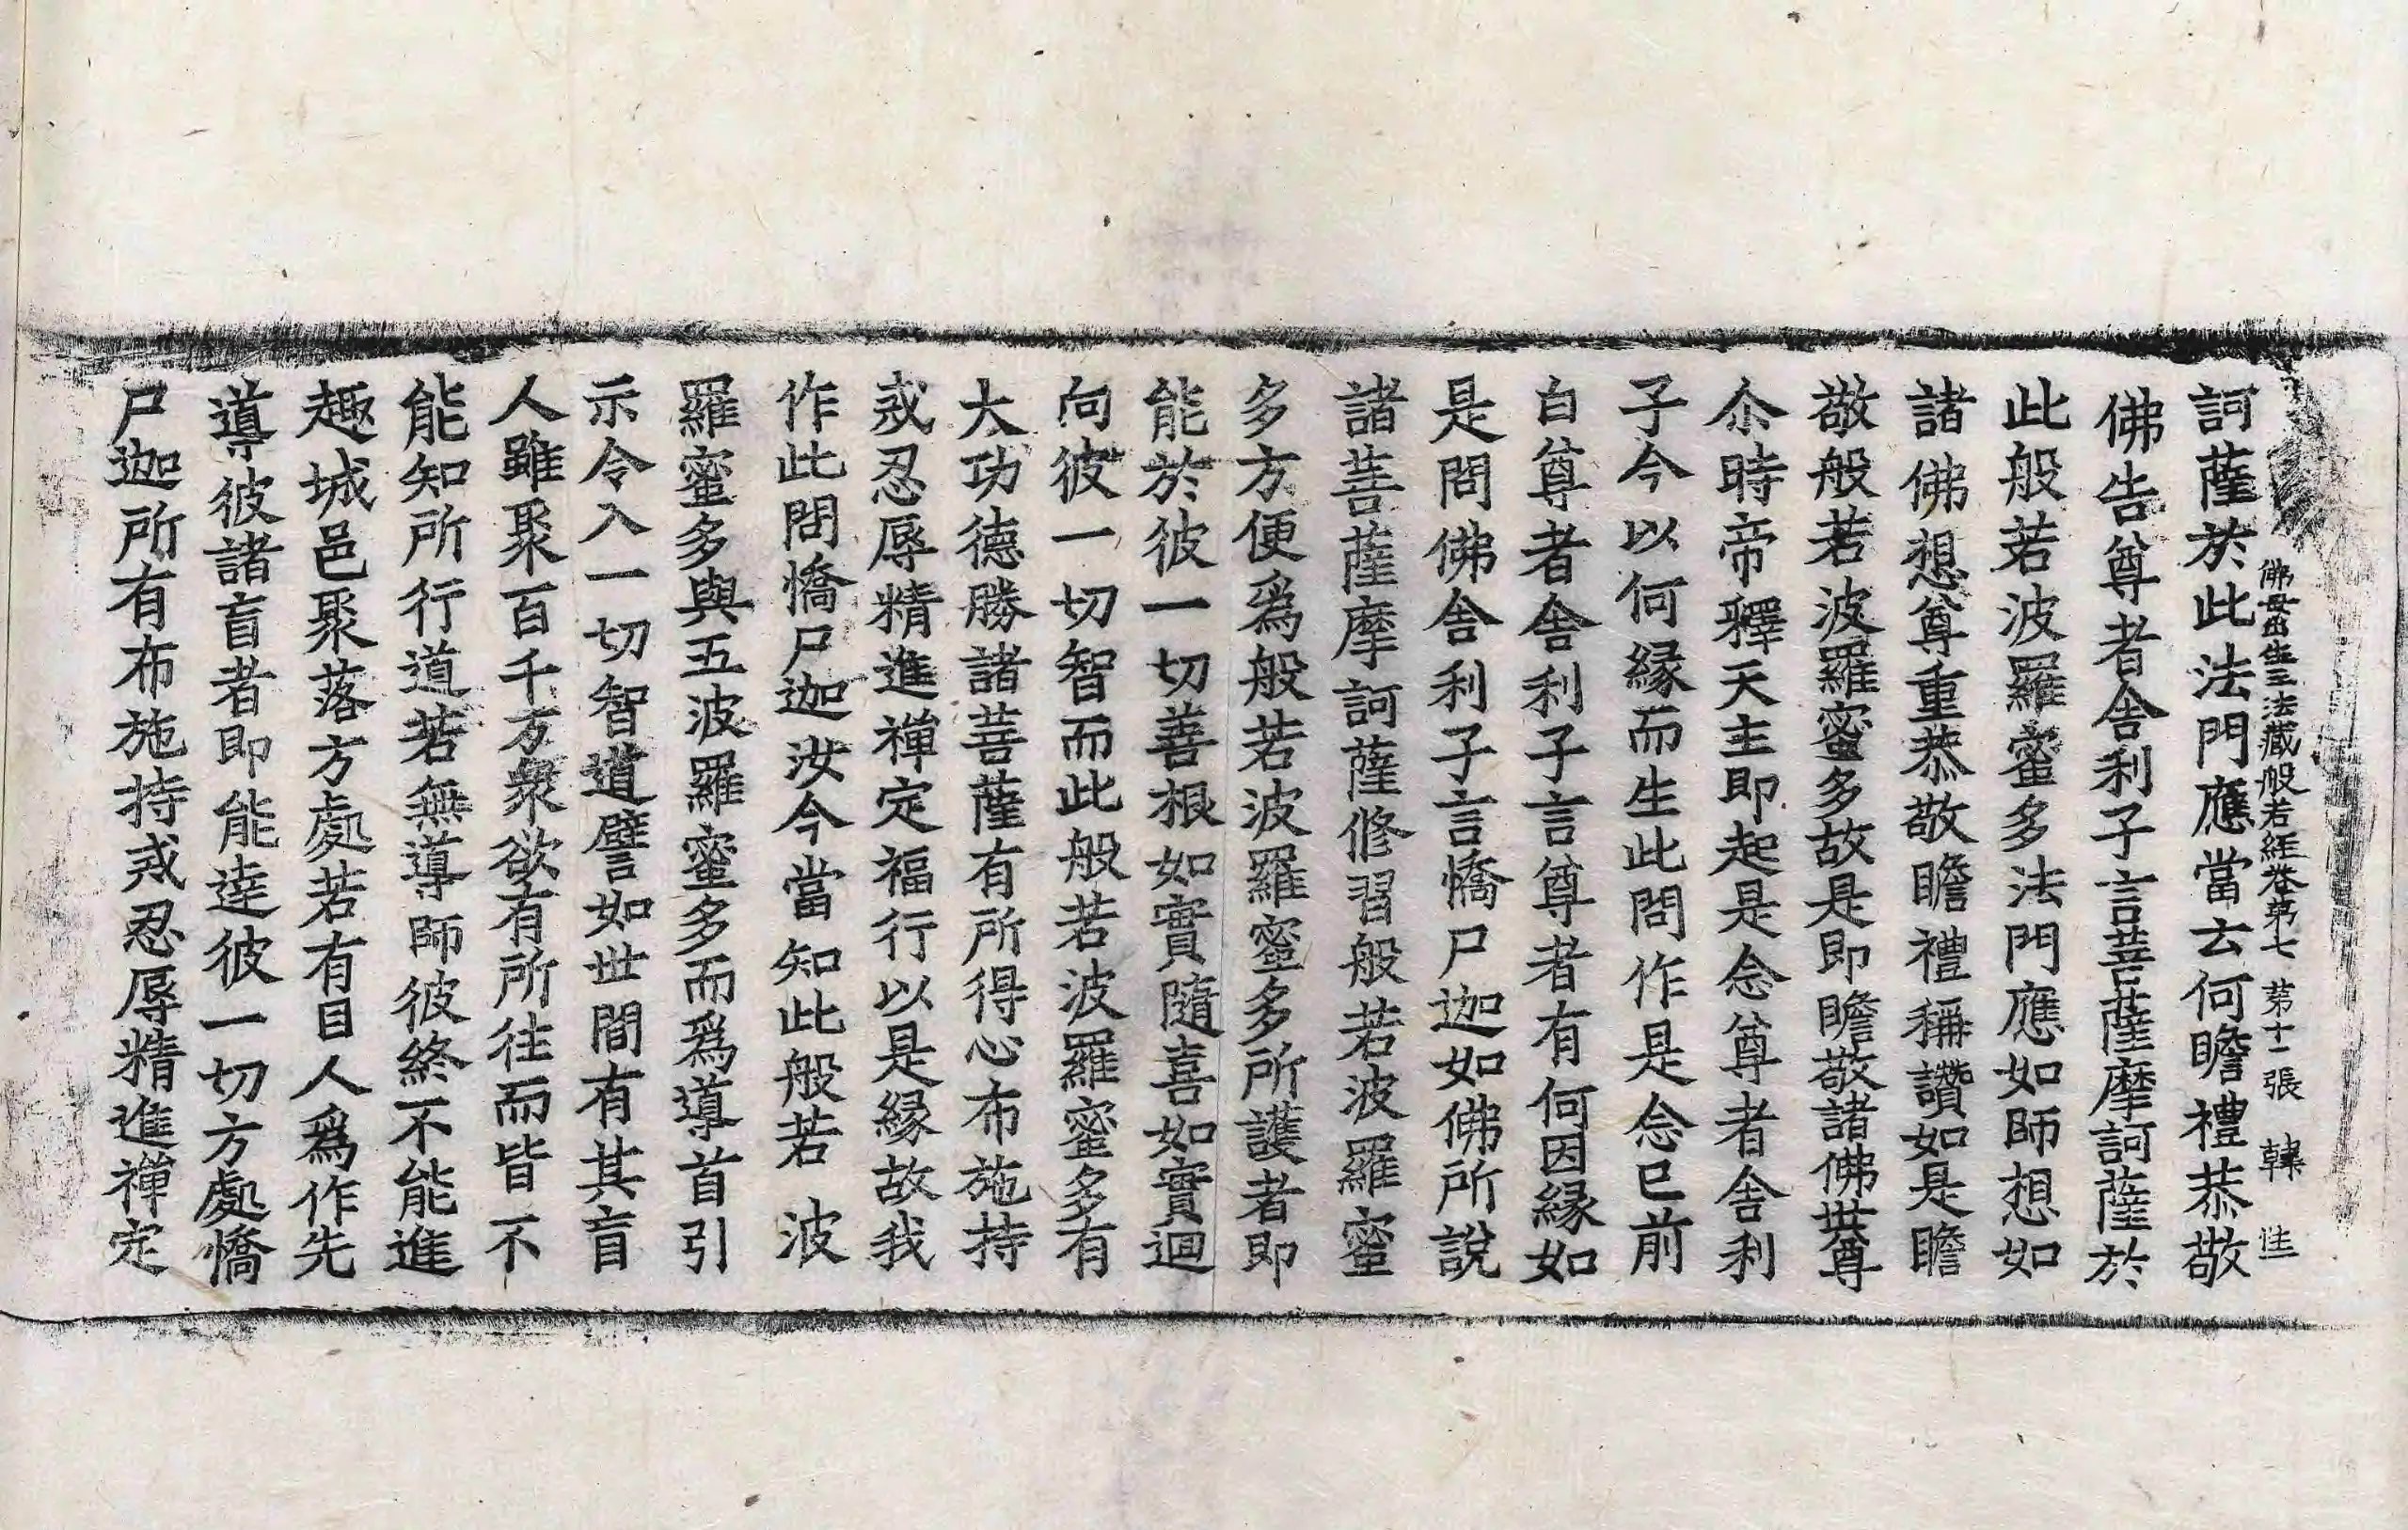 佛母出生三法藏般若經卷第七 第十一張 韓
訶薩於此法門應當云何瞻禮恭敬
佛告尊者舍利子言菩薩摩訶薩於
此般若波羅蜜多法門應如師想如
諸佛想尊重恭敬瞻禮稱讚如是瞻
敬般若波羅蜜多故是即瞻敬諸佛世尊
尒時帝釋天主即起是念尊者舍利
子今以何緣而生此問作是念已前
白尊者舍利子言尊者有何因緣如
是問佛舍利子言憍尸迦如佛所說
諸菩薩摩訶薩修習般若波羅蜜
多方便爲般若波羅蜜多所護者即
能於彼一切善根如實隨喜如實迴
向彼一切智而此般若波羅蜜多有
大功德勝諸菩薩有所得心布施持
戒忍辱精進禪定福行以是緣故我
作此問憍尸迦汝今當知此般若波
羅蜜多與五波羅蜜多而爲導首引
示令入一切智道譬如世間有其盲
人雖聚百千万衆欲有所往而皆不
能知所行道若無導師彼終不能進
趣城邑聚落方處若有目人爲作先
導彼諸盲者即能達彼一切方處憍
尸迦所有布施持戒忍辱精進禪定